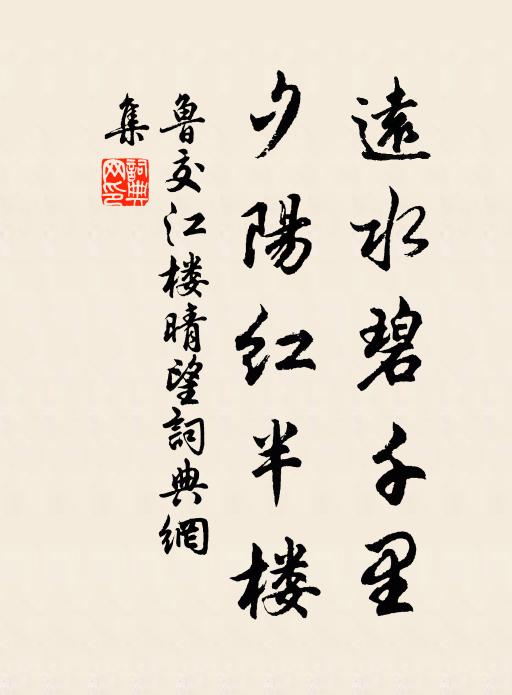 遠水碧千里
夕陽紅半楼
魯交江楼晴望詞典網
集
詞典网印